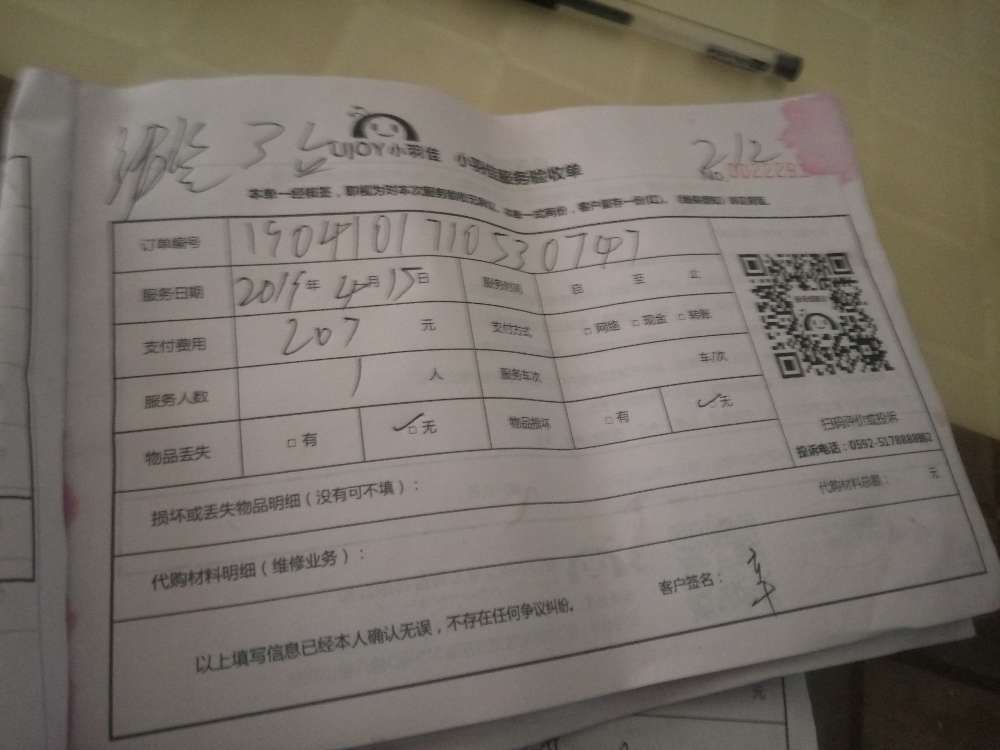 3台
UJOY 小羽佳 小羽佳服务验收单
212
No. 0022293
订单编号 190410171053074​7
服务日期 2019年 4月 15日 服务时间 自 至 止
支付费用 207 元 支付方式 □网络 □现金 □转账
服务人数 1 人 服务车次 车/次
物品丢失 □有 ✓□无 物品损坏 □有 ✓□无
扫码评价或投诉
投诉电话:0592-5178888转2
损坏或丢失物品明细(没有可不填):
代购材料总额: 元
代购材料明细(维修业务):
客户签名:
以上填写信息已经本人确认无误,不存在任何争议纠纷。